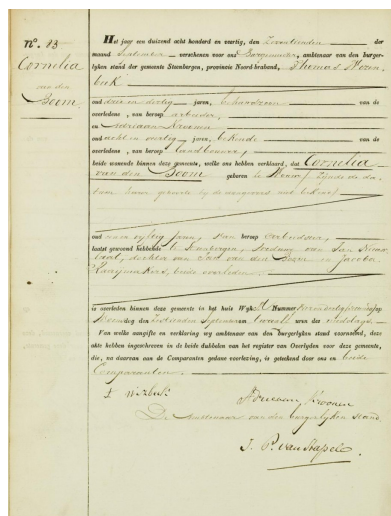 N.º 83
Cornelia
van den
Boom
Het jaar een duizend acht honderd en veertig, den Zeventienden der
maand September verschenen voor ons Burgemeester, ambtenaar van den burger-
lyken stand der gemeente Steenbergen, provincie Noord-braband, Thomas
oud drie en dertig jaren, behuwdzoon van de
overledene, van beroep arbeider,
en Adriaan
oud acht en veertig jaren, bekende van de
overledene, van beroep landbouwer,
beide wonende binnen deze gemeente, welke ons hebben verklaard, dat Cornelia
van den Boom geboren te
oud jaren, van beroep arbeidster,
laatst gewoond hebbende te Steenbergen, weduwe van Jan
dochter van van den Boom en Jacoba
beide overleden
is overleden binnen deze gemeente in het huis Wyk Nummer
den September ten twaalf uren des middags.
Van welke aangifte en verklaring wy ambtenaar van den burgerlyken stand voornoemd, deze
akte hebben ingeschreven in de beide dubbelen van het register van Overlyden voor deze gemeente,
die, na daarvan aan de Comparanten gedane voorlezing, is geteekend door ons en beide
Comparanten
De Ambtenaar van den burgerlyken stand
J. P. van Stapele